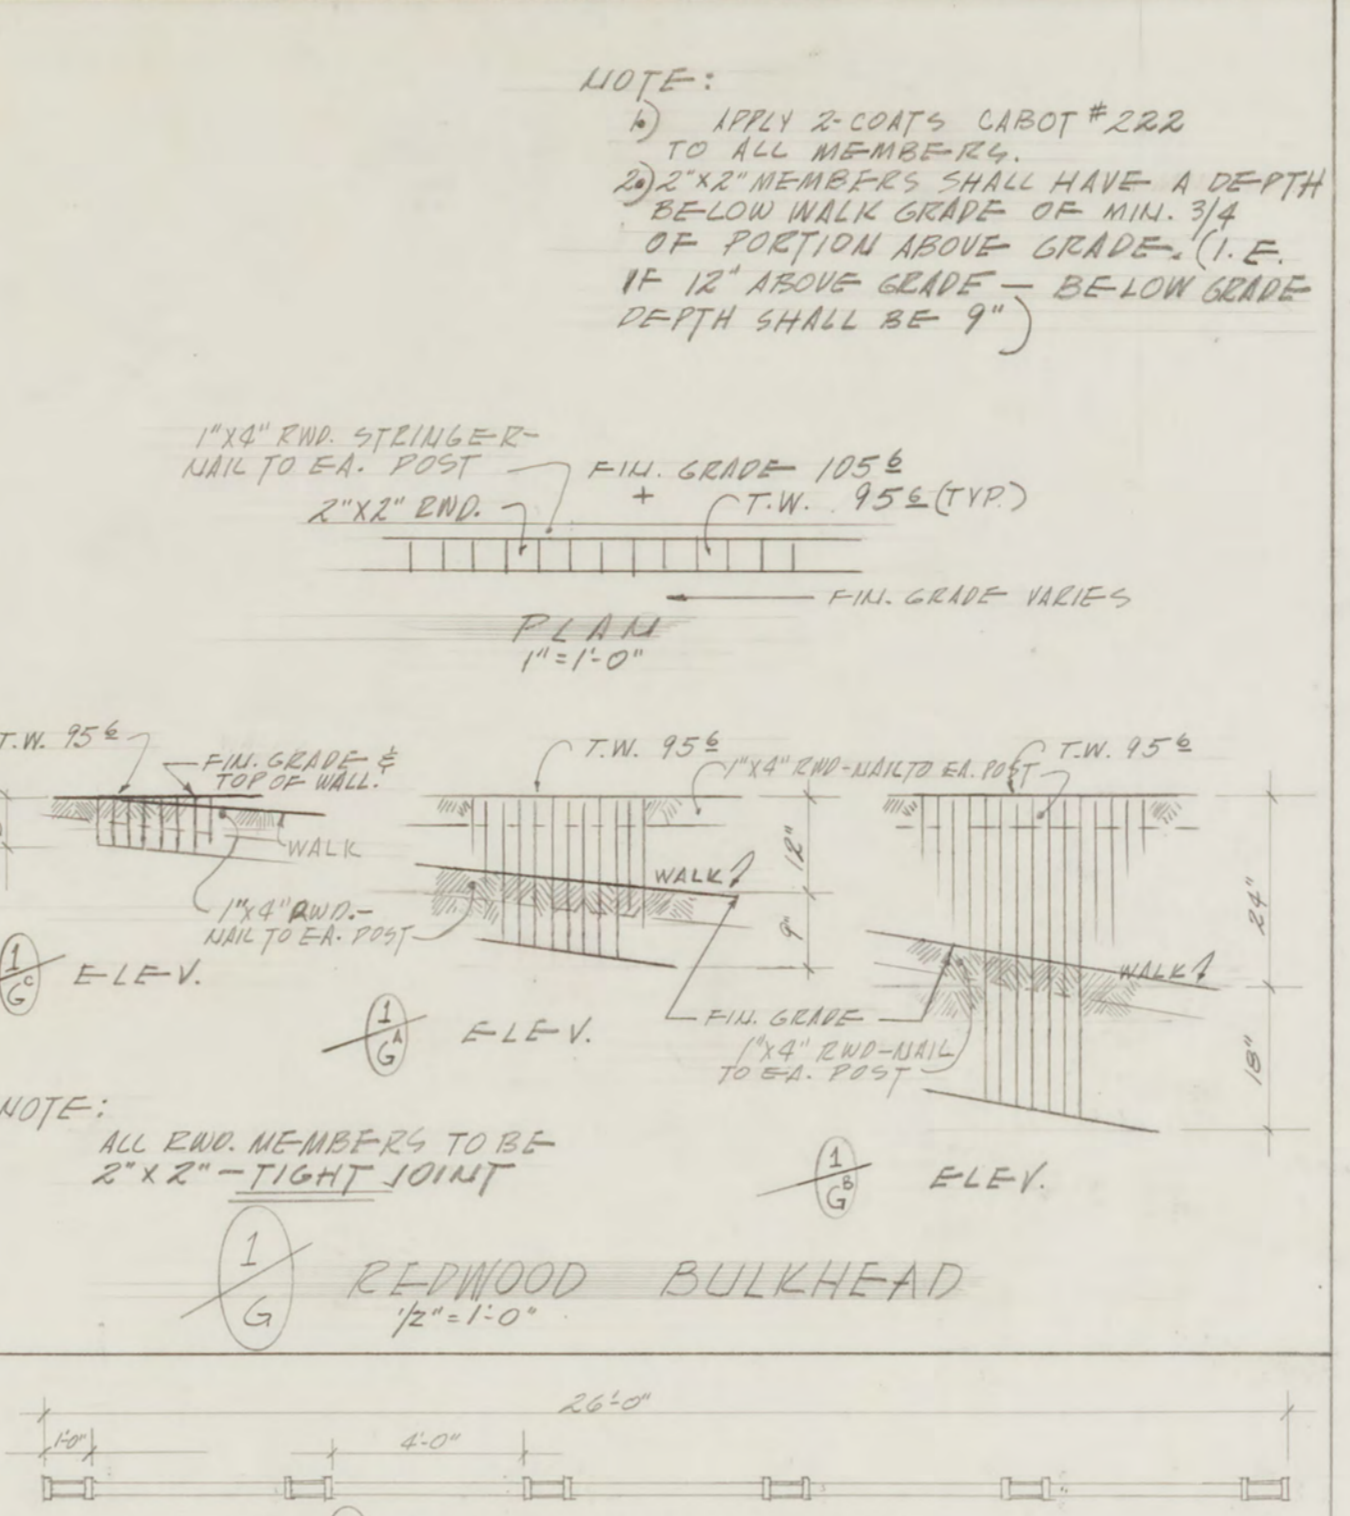 NOTE:
1.) APPLY 2-COATS CABOT #222
TO ALL MEMBERS.
2.) 2"X2" MEMBERS SHALL HAVE A DEPTH
BELOW WALK GRADE OF MIN. 3/4
OF PORTION ABOVE GRADE. (I.E.
IF 12" ABOVE GRADE — BELOW GRADE
DEPTH SHALL BE 9")
1"X4" RWD. STRINGER-
NAIL TO EA. POST
2"X2" RWD.
FIN. GRADE 105 6
+
T.W. 95 6 (TYP.)
FIN. GRADE VARIES
PLAN
1"=1'-0"
T.W. 95 6
FIN. GRADE &
TOP OF WALL.
WALK
1"X4" RWD.-
NAIL TO EA. POST
1
G C
ELEV.
T.W. 95 6
1"X4" RWD-NAIL TO EA. POST
WALK
12"
9"
FIN. GRADE
1
G A
ELEV.
T.W. 95 6
WALK
24"
18"
1"X4" RWD-NAIL
TO EA. POST
1
G B
ELEV.
NOTE:
ALL RWD. MEMBERS TO BE
2"X2"-TIGHT JOINT
1
G
REDWOOD BULKHEAD
1/2"=1'-0"
26'-0"
1'-0"
4'-0"